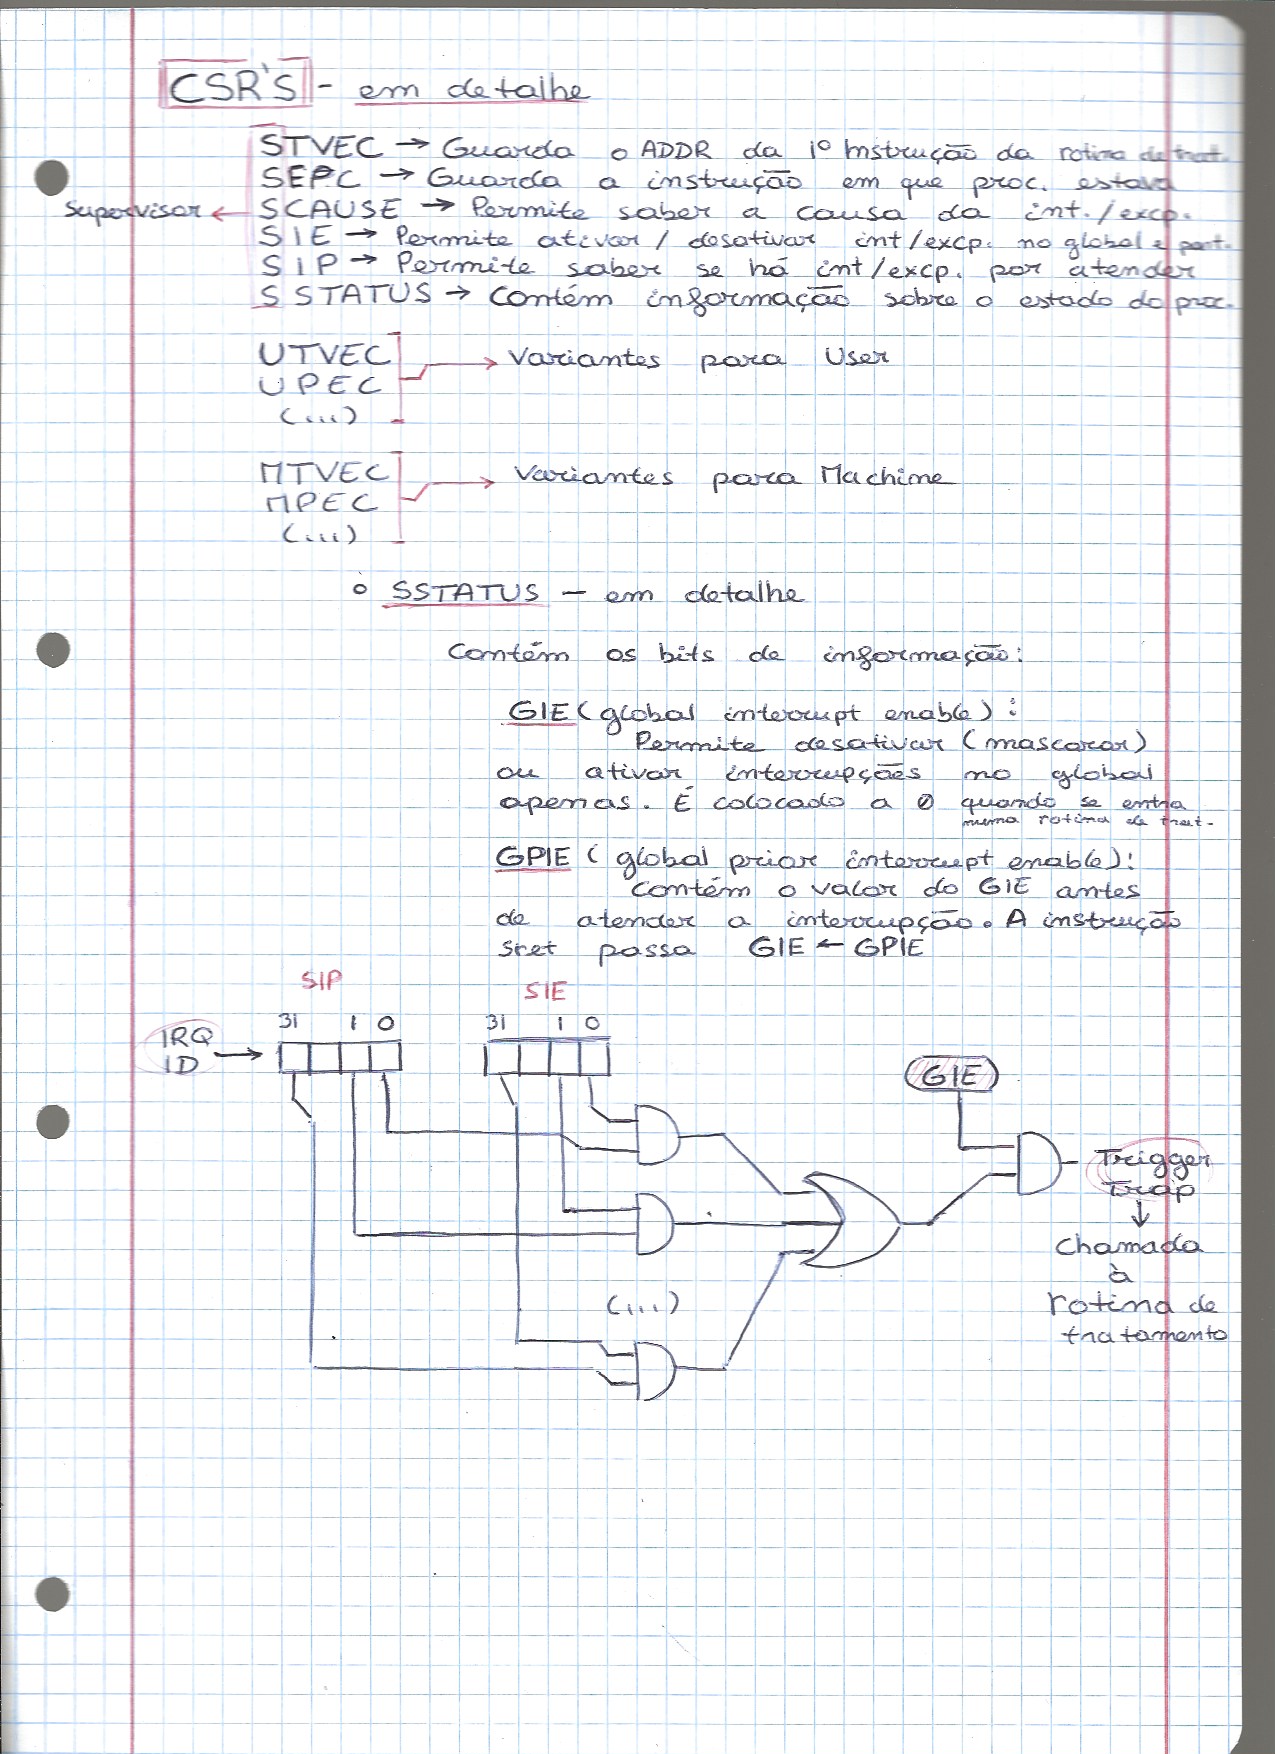 CSR'S - em detalhe
STVEC → Guarda o ADDR da 1º Instrução da rotina de trat.
SEPC → Guarda a instrução em que proc. estava
Supervisor ← SCAUSE → Permite saber a causa da int./excp.
SIE → Permite ativar / desativar int/excp. no global e part.
SIP → Permite saber se há int/excp. por atender
SSTATUS → Contém informação sobre o estado do proc.
UTVEC → Variantes para User
UPEC
(...)
MTVEC → Variantes para Machine
MPEC
(...)
o SSTATUS - em detalhe
Contém os bits de informação:
GIE (global interrupt enable):
Permite desativar (mascarar)
ou ativar interrupções no global
apenas. É colocado a 0 quando se entra
numa rotina de trat.
GPIE (global prior interrupt enable):
Contém o valor do GIE antes
de atender a interrupção. A instrução
sret passa GIE ← GPIE
SIP SIE
31 1 0 31 1 0
IRQ
ID →
GIE
Trigger
Trap
↓
Chamada
à
rotina de
tratamento
(...)